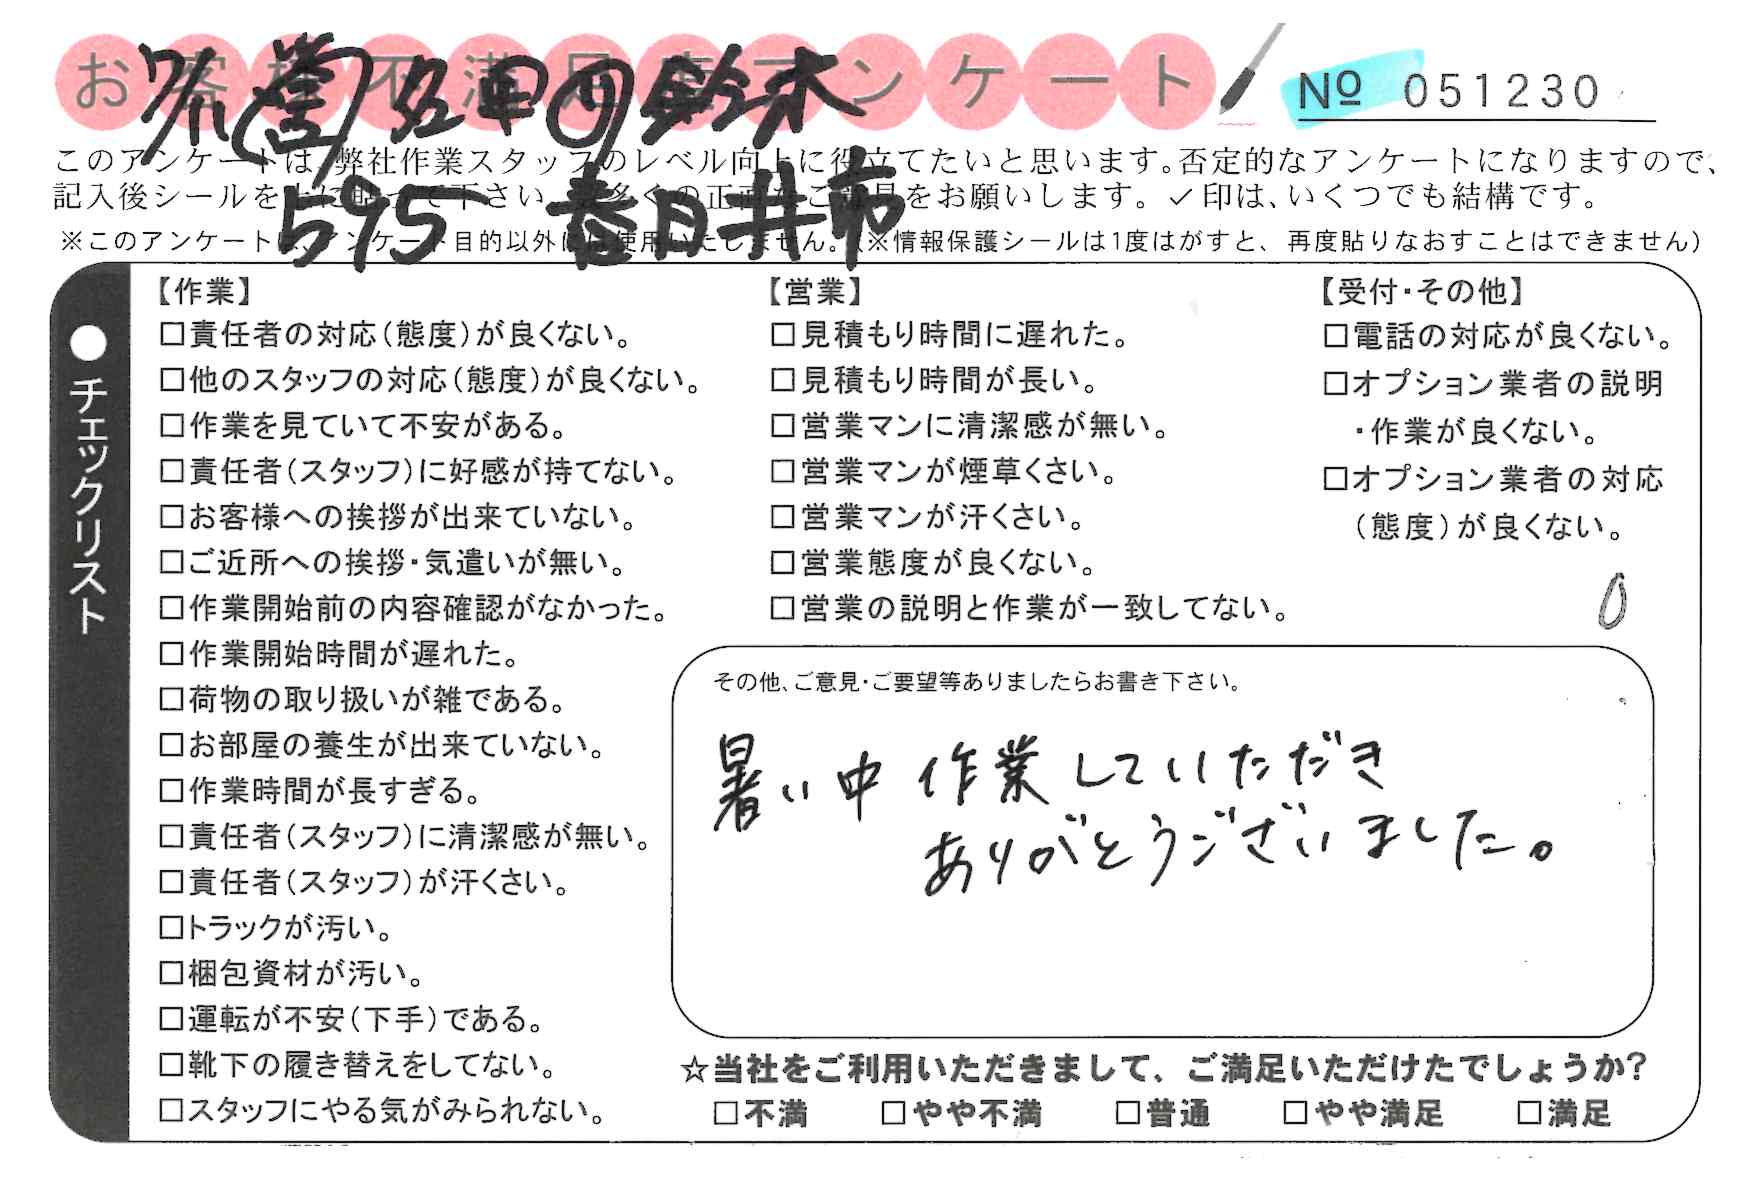 お客様不満足度アンケート
№ 051230
鈴木
595 春日井市
このアンケートは、弊社作業スタッフのレベル向上に役立てたいと思います。否定的なアンケートになりますので、
記入後シールを上に貼って下さい。数多くの正直なご意見をお願いします。✓印は、いくつでも結構です。
※このアンケートは、アンケート目的以外には使用いたしません。(※情報保護シールは1度はがすと、再度貼りなおすことはできません)
●チェックリスト
【作業】
□責任者の対応(態度)が良くない。
□他のスタッフの対応(態度)が良くない。
□作業を見ていて不安がある。
□責任者(スタッフ)に好感が持てない。
□お客様への挨拶が出来ていない。
□ご近所への挨拶・気遣いが無い。
□作業開始前の内容確認がなかった。
□作業開始時間が遅れた。
□荷物の取り扱いが雑である。
□お部屋の養生が出来ていない。
□作業時間が長すぎる。
□責任者(スタッフ)に清潔感が無い。
□責任者(スタッフ)が汗くさい。
□トラックが汚い。
□梱包資材が汚い。
□運転が不安(下手)である。
□靴下の履き替えをしてない。
□スタッフにやる気がみられない。
【営業】
□見積もり時間に遅れた。
□見積もり時間が長い。
□営業マンに清潔感が無い。
□営業マンが煙草くさい。
□営業マンが汗くさい。
□営業態度が良くない。
□営業の説明と作業が一致してない。
【受付・その他】
□電話の対応が良くない。
□オプション業者の説明
・作業が良くない。
□オプション業者の対応
(態度)が良くない。
0
その他、ご意見・ご要望等ありましたらお書き下さい。
暑い中 作業していただき
ありがとうございました。
☆当社をご利用いただきまして、ご満足いただけたでしょうか?
□不満 □やや不満 □普通 □やや満足 □満足